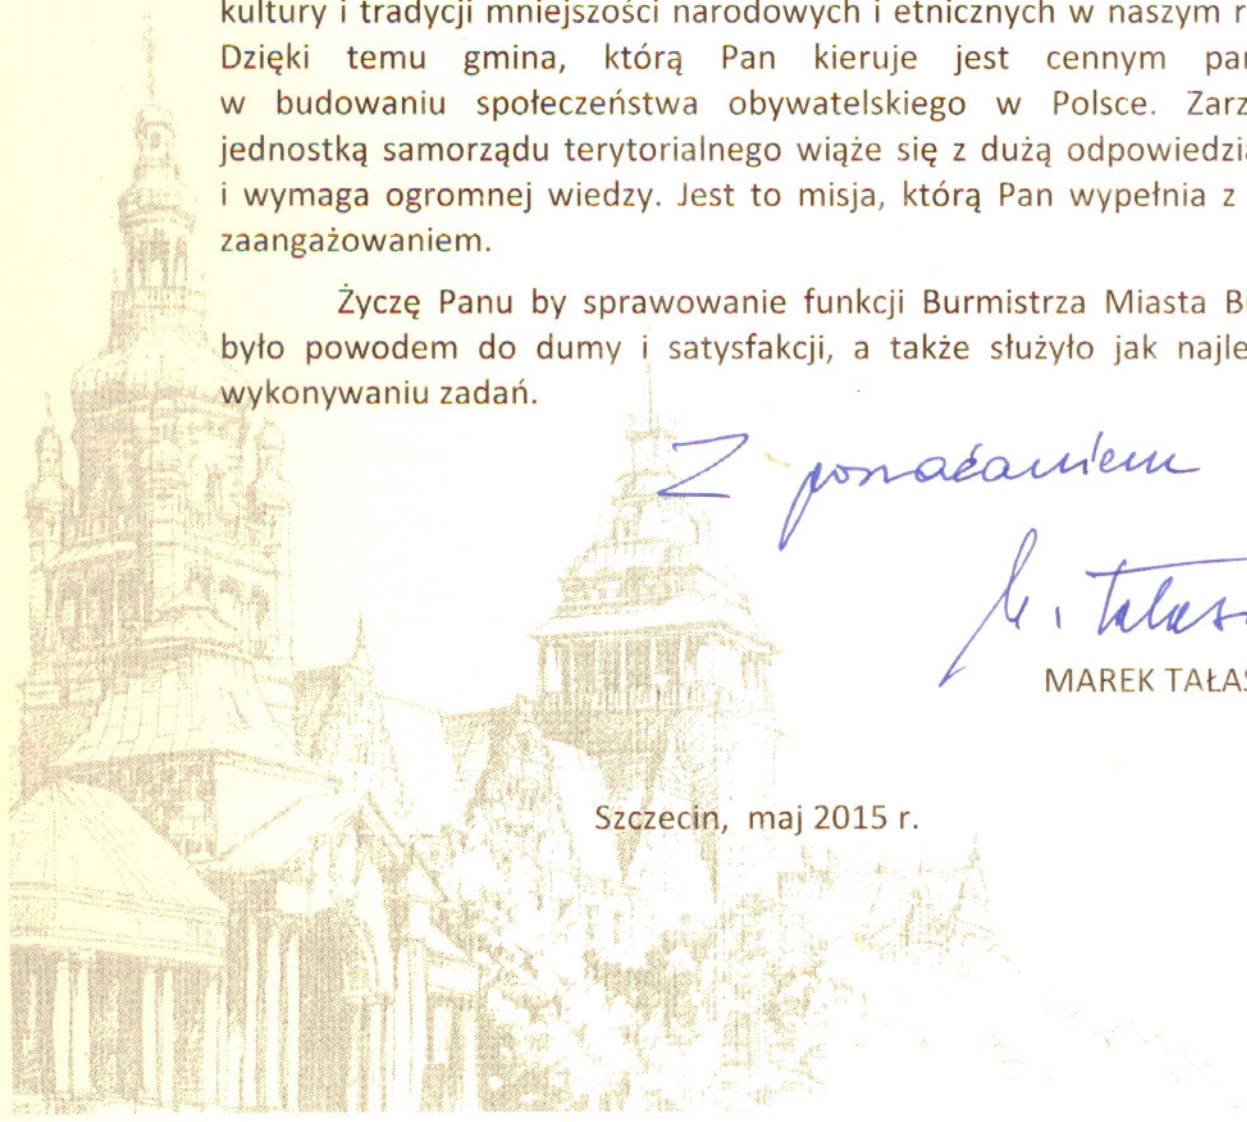 kultury i tradycji mniejszości narodowych i etnicznych w naszym r
Dzięki temu gmina, którą Pan kieruje jest cennym par
w budowaniu społeczeństwa obywatelskiego w Polsce. Zarz
jednostką samorządu terytorialnego wiąże się z dużą odpowiedzia
i wymaga ogromnej wiedzy. Jest to misja, którą Pan wypełnia z
zaangażowaniem.
Życzę Panu by sprawowanie funkcji Burmistrza Miasta B
było powodem do dumy i satysfakcji, a także służyło jak najle
wykonywaniu zadań.
Z poważaniem
M. Tałas
MAREK TAŁAS
Szczecin, maj 2015 r.